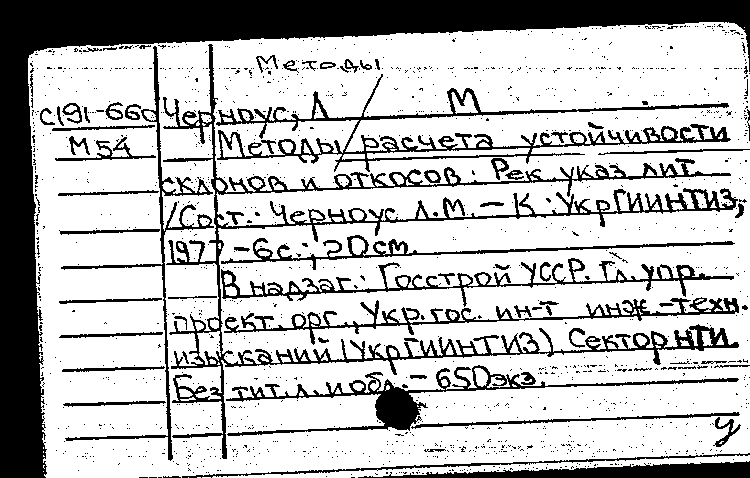 Методы
С191-660 Черноус, Л М
М54 Методы расчета устойчивости
склонов и откосов: Рек указ лит.
/Сост.: Черноус Л.М. – К : УкрГИИНТИЗ,
1977.-6с.; 20см.
В надзаг.: Госстрой УССР. Гл. упр.
проект. орг., Укр. гос. ин-т инж.-техн.
изысканий (УкрГИИНТИЗ). Сектор НТИ.
Без тит. л. и обл. – 650экз.
У